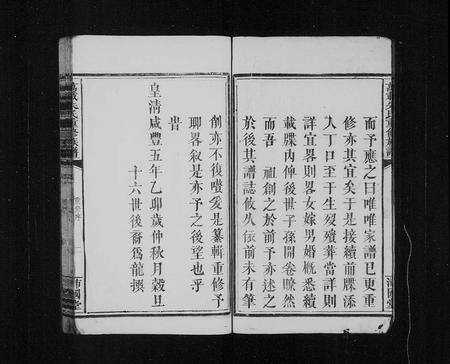 而予應之曰唯唯家譜已更重
修亦其宜矣于是接續前牒添
人丁口至于生殁殯葬當詳則
詳宜畧則畧女嫁男婚概悉續
載牒內俾後世子孫開卷瞭然
而吾 祖創之於前予亦述之
於後其譜誌攸久
前未有筆
創亦不復噬爰是纂輯重修予
聊畧叙是亦予之後望也乎
旹
皇清咸豐五年乙卯歲仲秋月穀旦
十六世後裔為龍撰